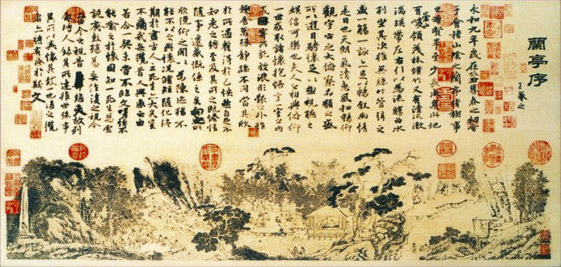 蘭亭序
王羲之
永和九年歲在癸丑暮春之初會
于會稽山陰之蘭亭脩稧事
也群賢畢至少長咸集此地
有崇山峻領茂林脩竹又有清流激
湍暎帶左右引以為流觴曲水
列坐其次雖無絲竹管弦之
盛一觴一詠亦足以暢敘幽情
是日也天朗氣清惠風和暢仰
觀宇宙之大俯察品類之盛
所以遊目騁懷足以極視聽之
娛信可樂也夫人之相與俯仰
一世或取諸懷抱悟言一室之內
或因寄所託放浪形骸之外雖
趣舍萬殊靜躁不同當其欣
於所遇暫得於己快然自足不
知老之將至及其所之既惓情
隨事遷感慨係之矣向之所
欣俛仰之閒以為陳迹猶不
能不以之興懷況脩短隨化終
期於盡古人云死生亦大矣豈
不痛哉每攬昔人興感之由
若合一契未嘗不臨文嗟悼不
能喻之於懷固知一死生為虛
誕齊彭殤為妄作後之視今
亦由今之視昔悲夫故列
敘時人錄其所述雖世殊事
異所以興懷其致一也後之攬
者亦將有感於斯文